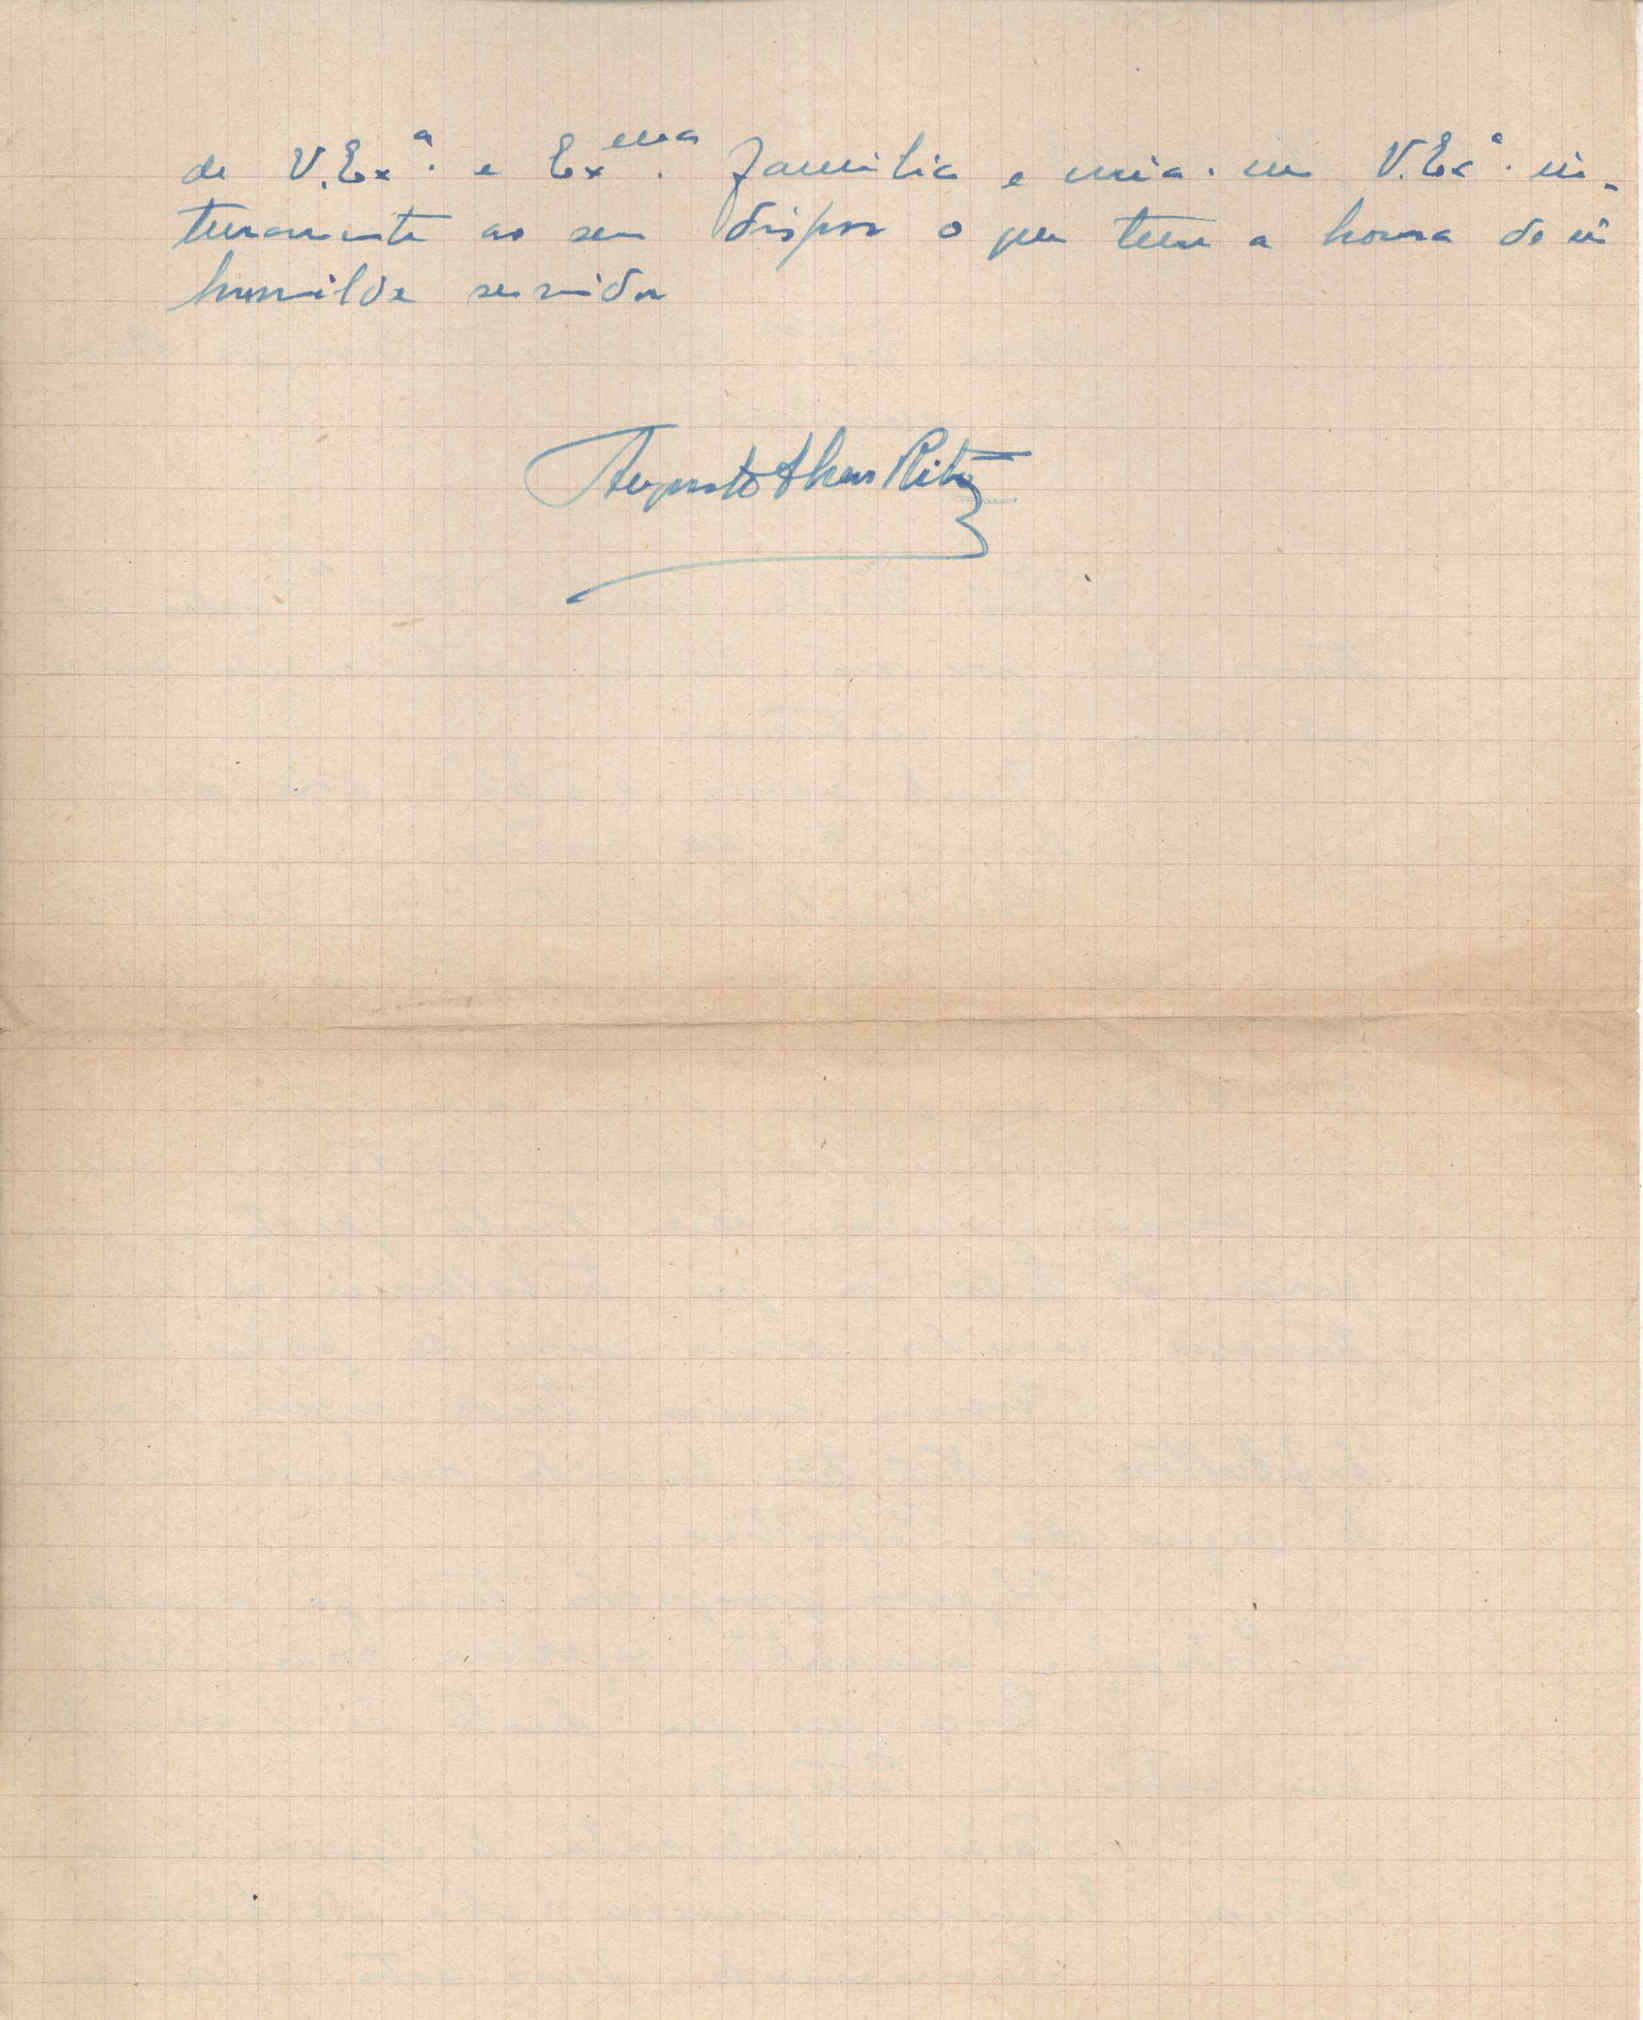 de V. Exª. e Exma. familia e creia. me V. Exª. in-
teiramente ao seu dispor o que tem a honra de ser
humilde servidor
Augusto Rita